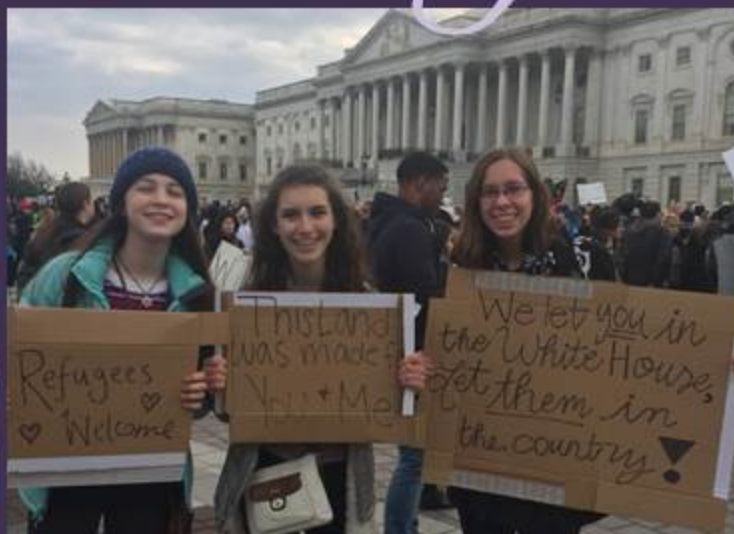 Refugees
Welcome
This Land
was made
You + Me
We let you in
the White House,
let them in
the country!